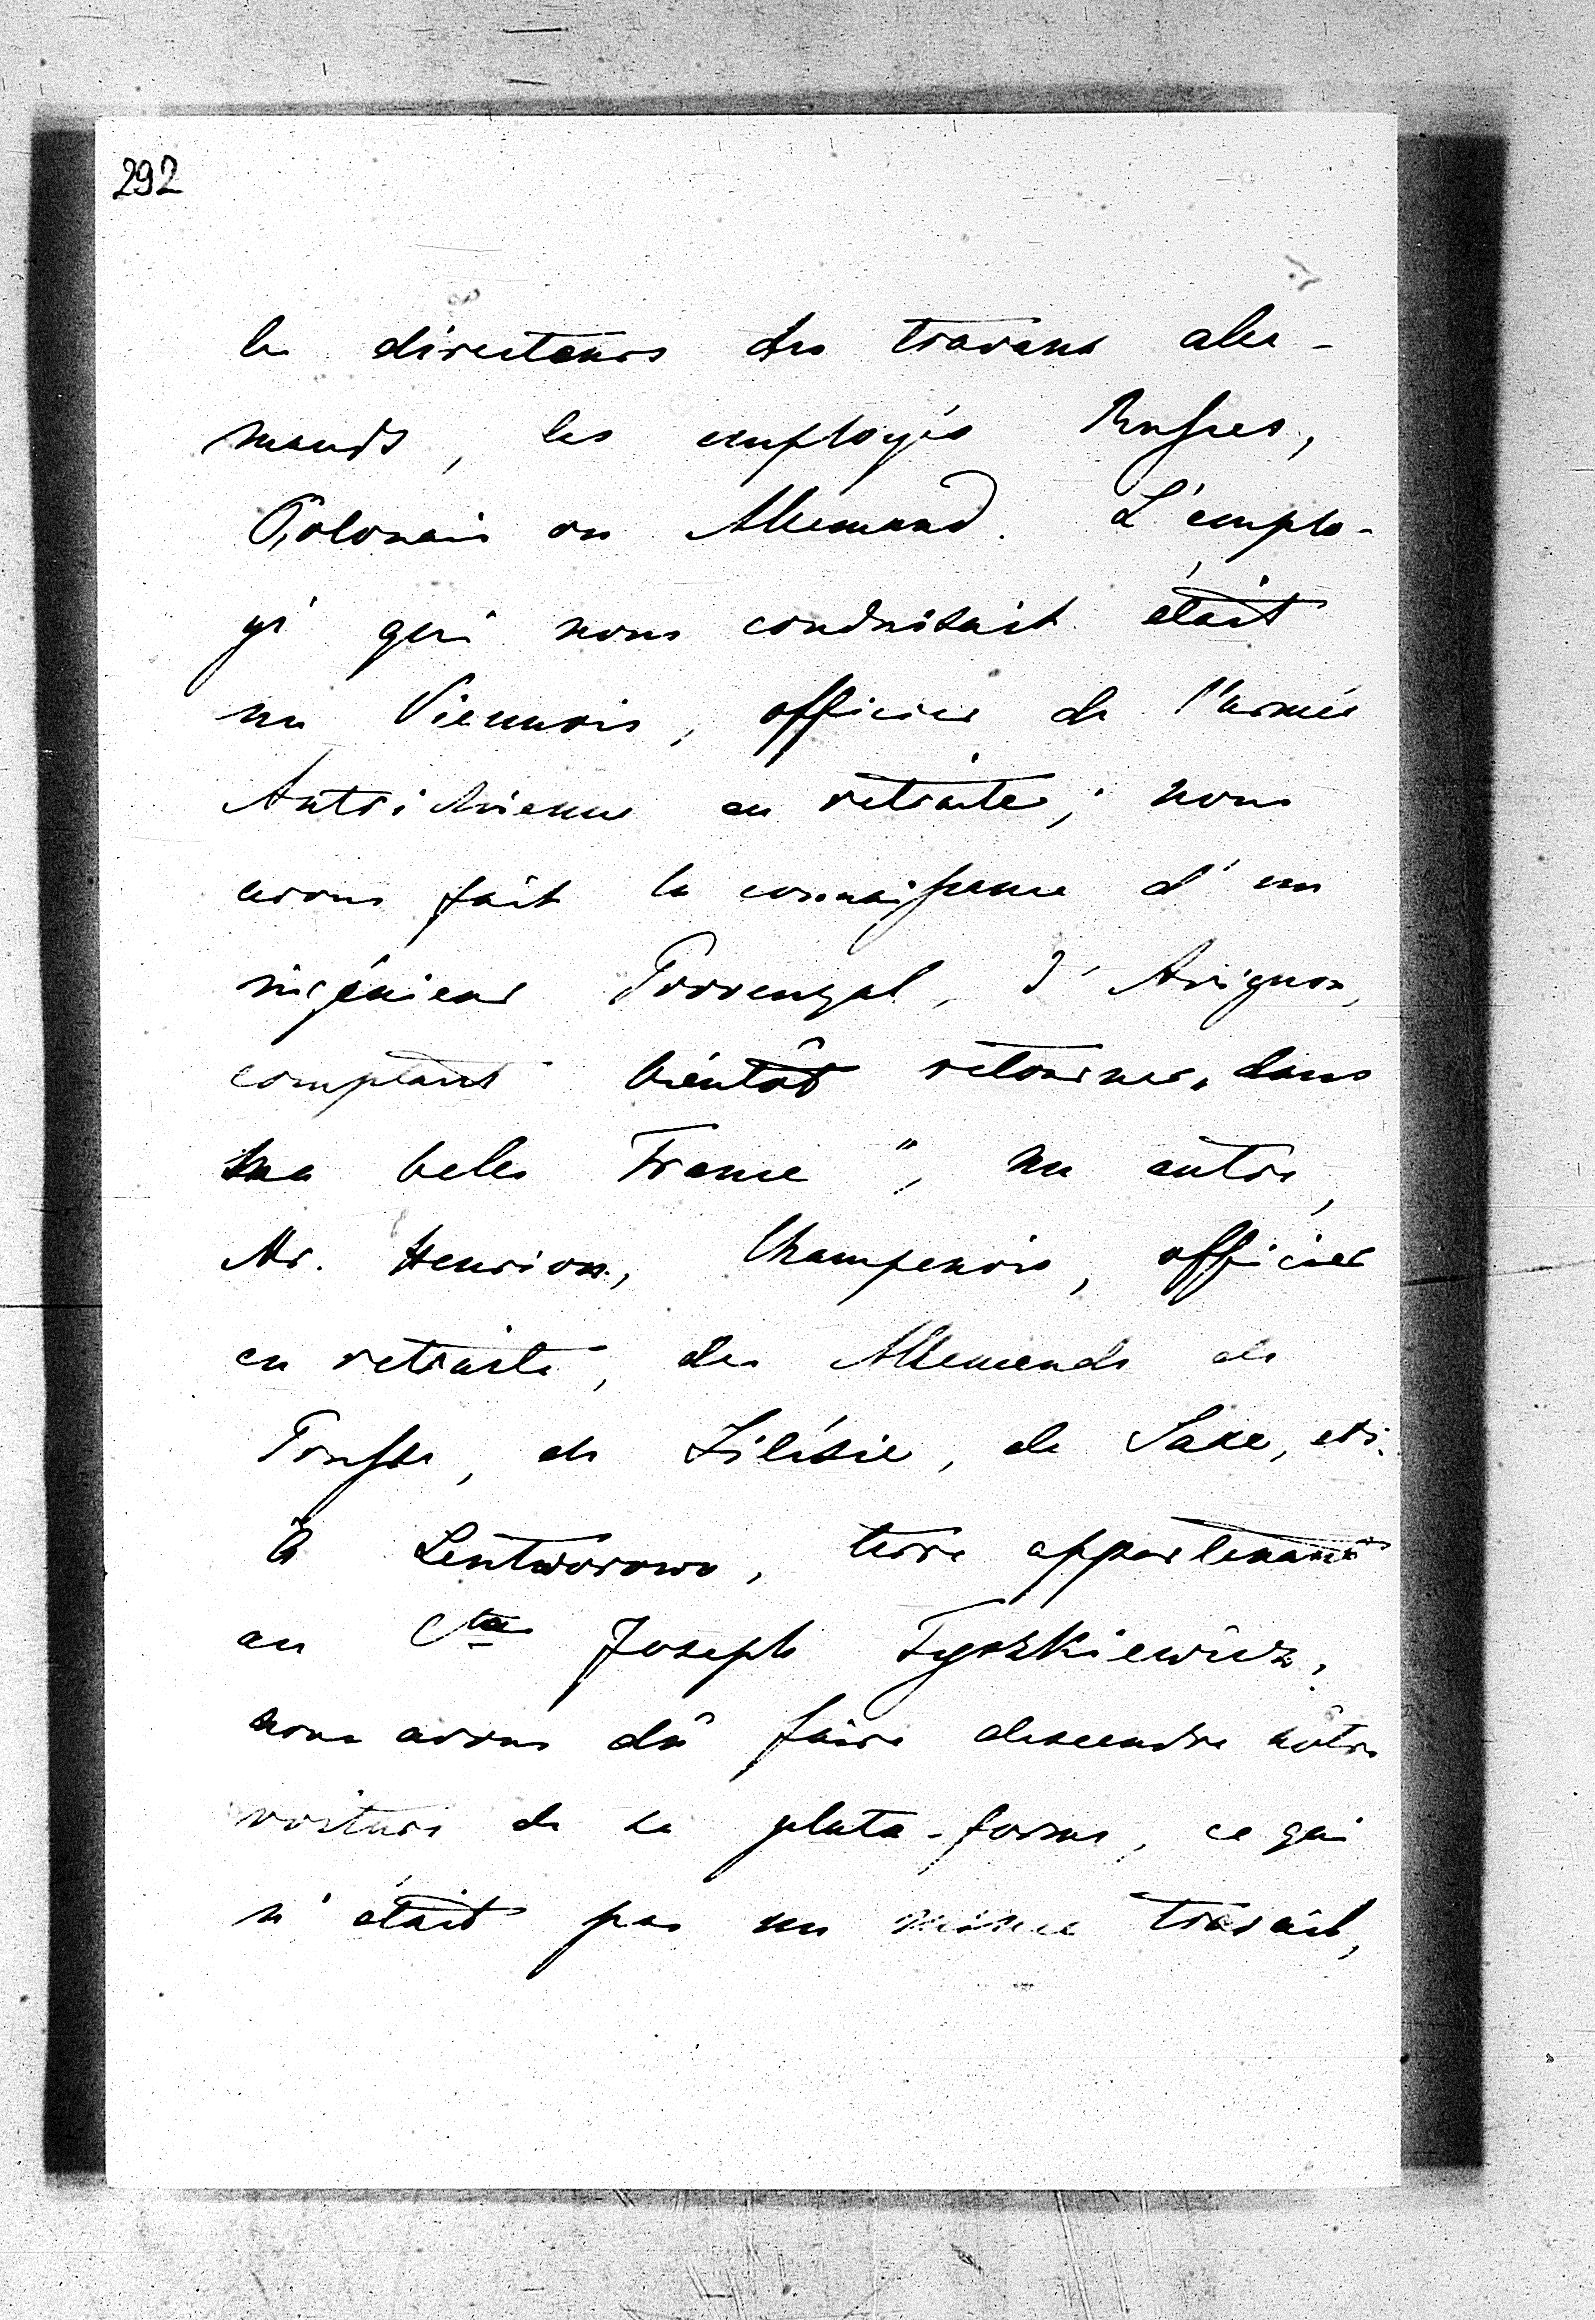 292
les directeurs des travaux alle-
mands, les employés Russes,
Polonais ou Allemand. L'emplo-
yé qui nous conduisait était
un Viennois, officier de l'armée
Autrichienne en retraite; nous
avons fait la connaissance d'un
ingénieur Provençal, d'Avignon,
comptant bientôt retourner „dans
sa belle France", un autre,
Mr. Henrion, Champenois, officier
en retraite, des Allemands de
Prusse, de Silésie, de Saxe, etc.
À Lentworowo, terre appartenant
au Cte Joseph Tyszkiewicz,
nous avons dû faire descendre nôtre
voiture de la plate-forme, ce qui
n'était pas un mince travail,